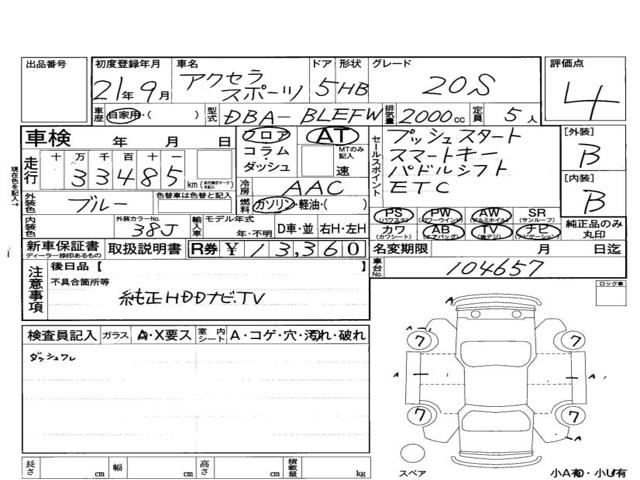 出品番号
初度登録年月 21年9月
車名 アクセラ スポーツ
ドア 5
形状 HB
グレード 20S
評価点 4
車歴 自家用・( )
型式 DBA-BLEFW
排気量 2000cc
定員 5人
車検 年 月 日
フロア AT
コラム・ダッシュ
MTのみ記入 速
走行 十 万 千 百 十 一
33485 km
現在色を記入→
外装色 ブルー
色替車は色替と記入
冷房 AAC
燃料 ガソリン・軽油・( )
内装色
外装カラーNo. 38J
輸入車
モデル年式 年・不明
D車・並
右H・左H
セールスポイント
プッシュスタート
スマートキー
パドルシフト
ETC
[外装] B
[内装] B
PS (パワステ) PW (パワーウインド) AW (アルミホイル) SR (サンルーフ)
カワ (カワシート) AB (エアバッグ) TV (地デジ) ナビ (ナビゲーション)
純正品のみ丸印
新車保証書
ディーラー捺印あるもの
取扱説明書
R券 ¥13,360
名変期限 月 日迄
注意事項
後日品【 】
不具合箇所等
純正HDDナビ.TV
車台No. 104657
ロック車
検査員記入
ガラス A・X要ス
室内シート A・コゲ・穴・汚れ・破れ
ダッシュフレ
7 A 7
A A
7 7
スペア
長さ cm 幅 cm 高さ cm 積載量 kg
小A有・小U有